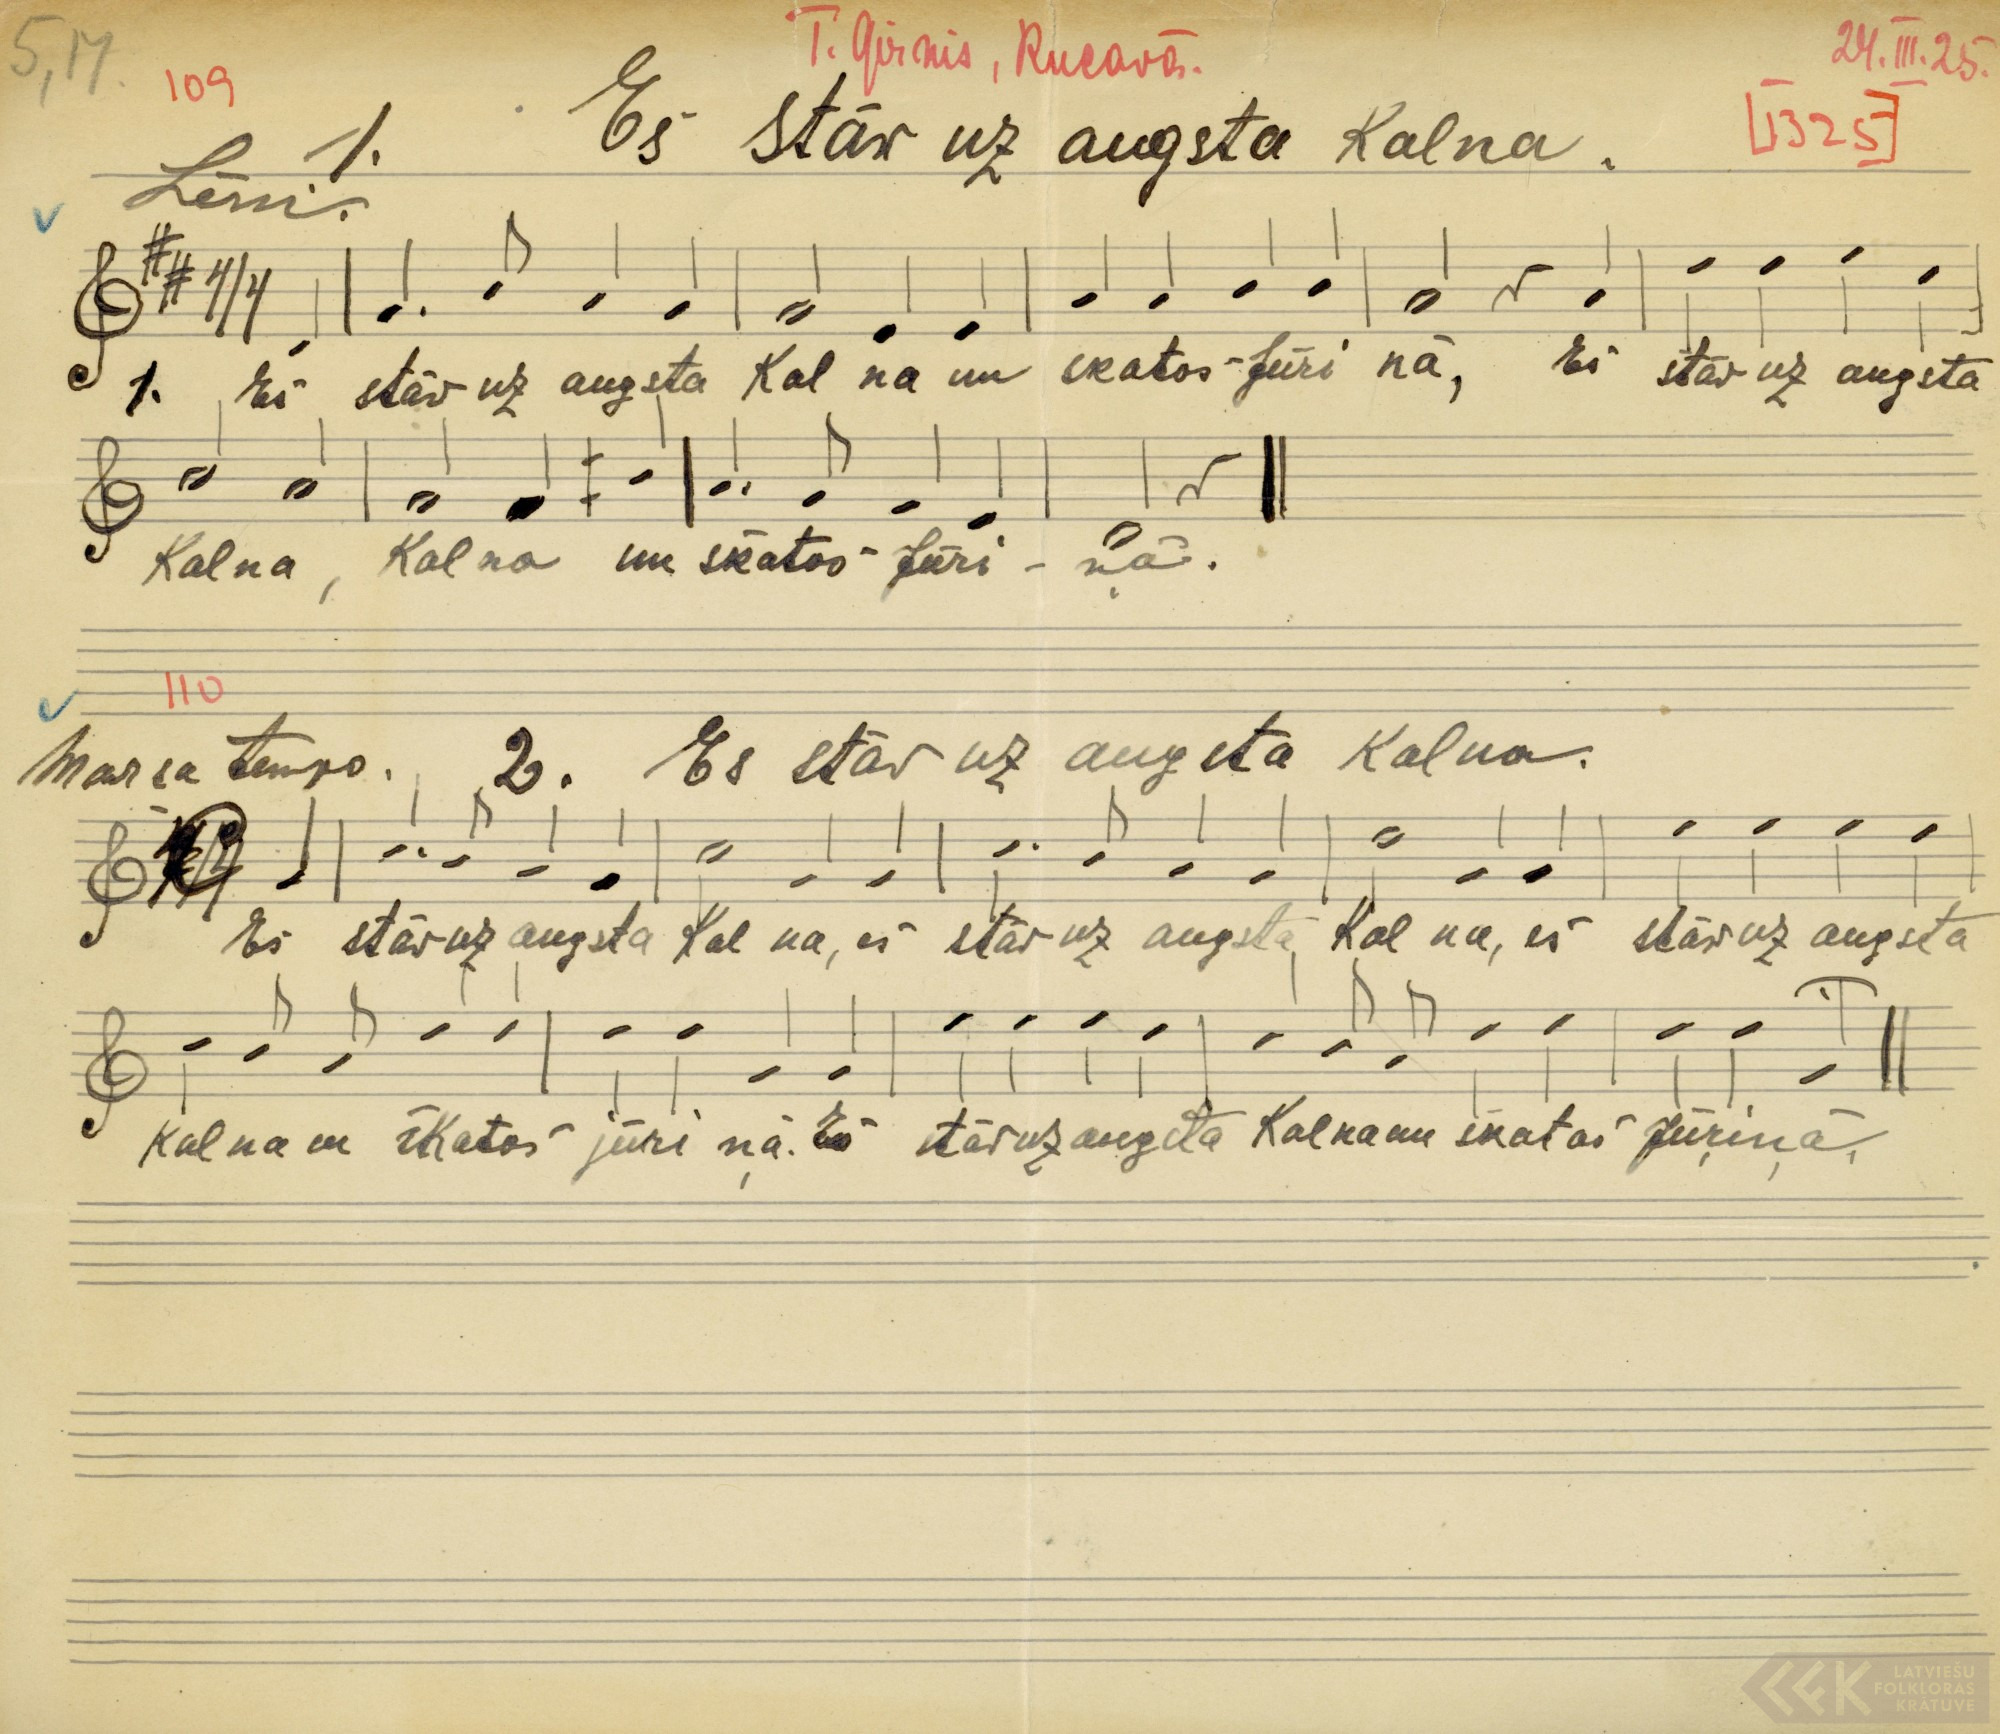 5,17.
T. Girnis, Rucavā.
24.III.25.
109
[1325]
1. Es stāv uz augsta Kalna.
Lēni.
4/4
1. Es stāv uz augsta Kal na un skatos Jūri nā, Es stāv uz augsta
Kalna, Kalna un skatos Jūri - ņā.
110
Marsa tempo. 2. Es stāv uz augsta Kalna.
Es stāv uz augsta Kal na, es stāv uz augsta Kal na, es stāv uz augsta
Kal na un skatos jūri ņā. Es stāv uz augsta Kalna un skatos Jūŗiņā.
LATVIEŠU
FOLKLORAS
KRĀTUVE